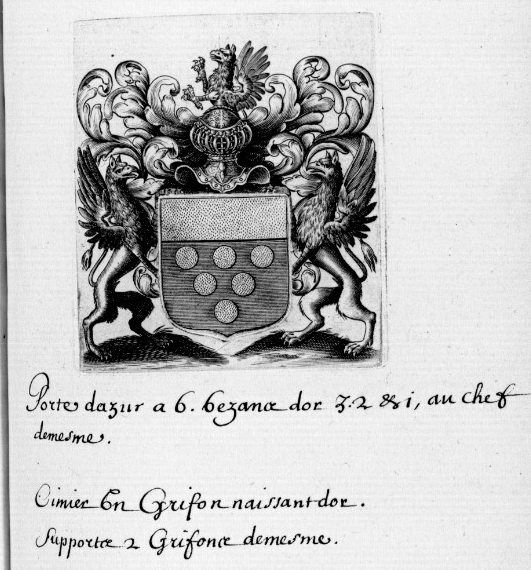 Porte dazur a 6. bezans dor 3.2 & 1, au chef
demesme.
Cimier Un Grifon naissant dor.
Supports 2 Grifons demesme.